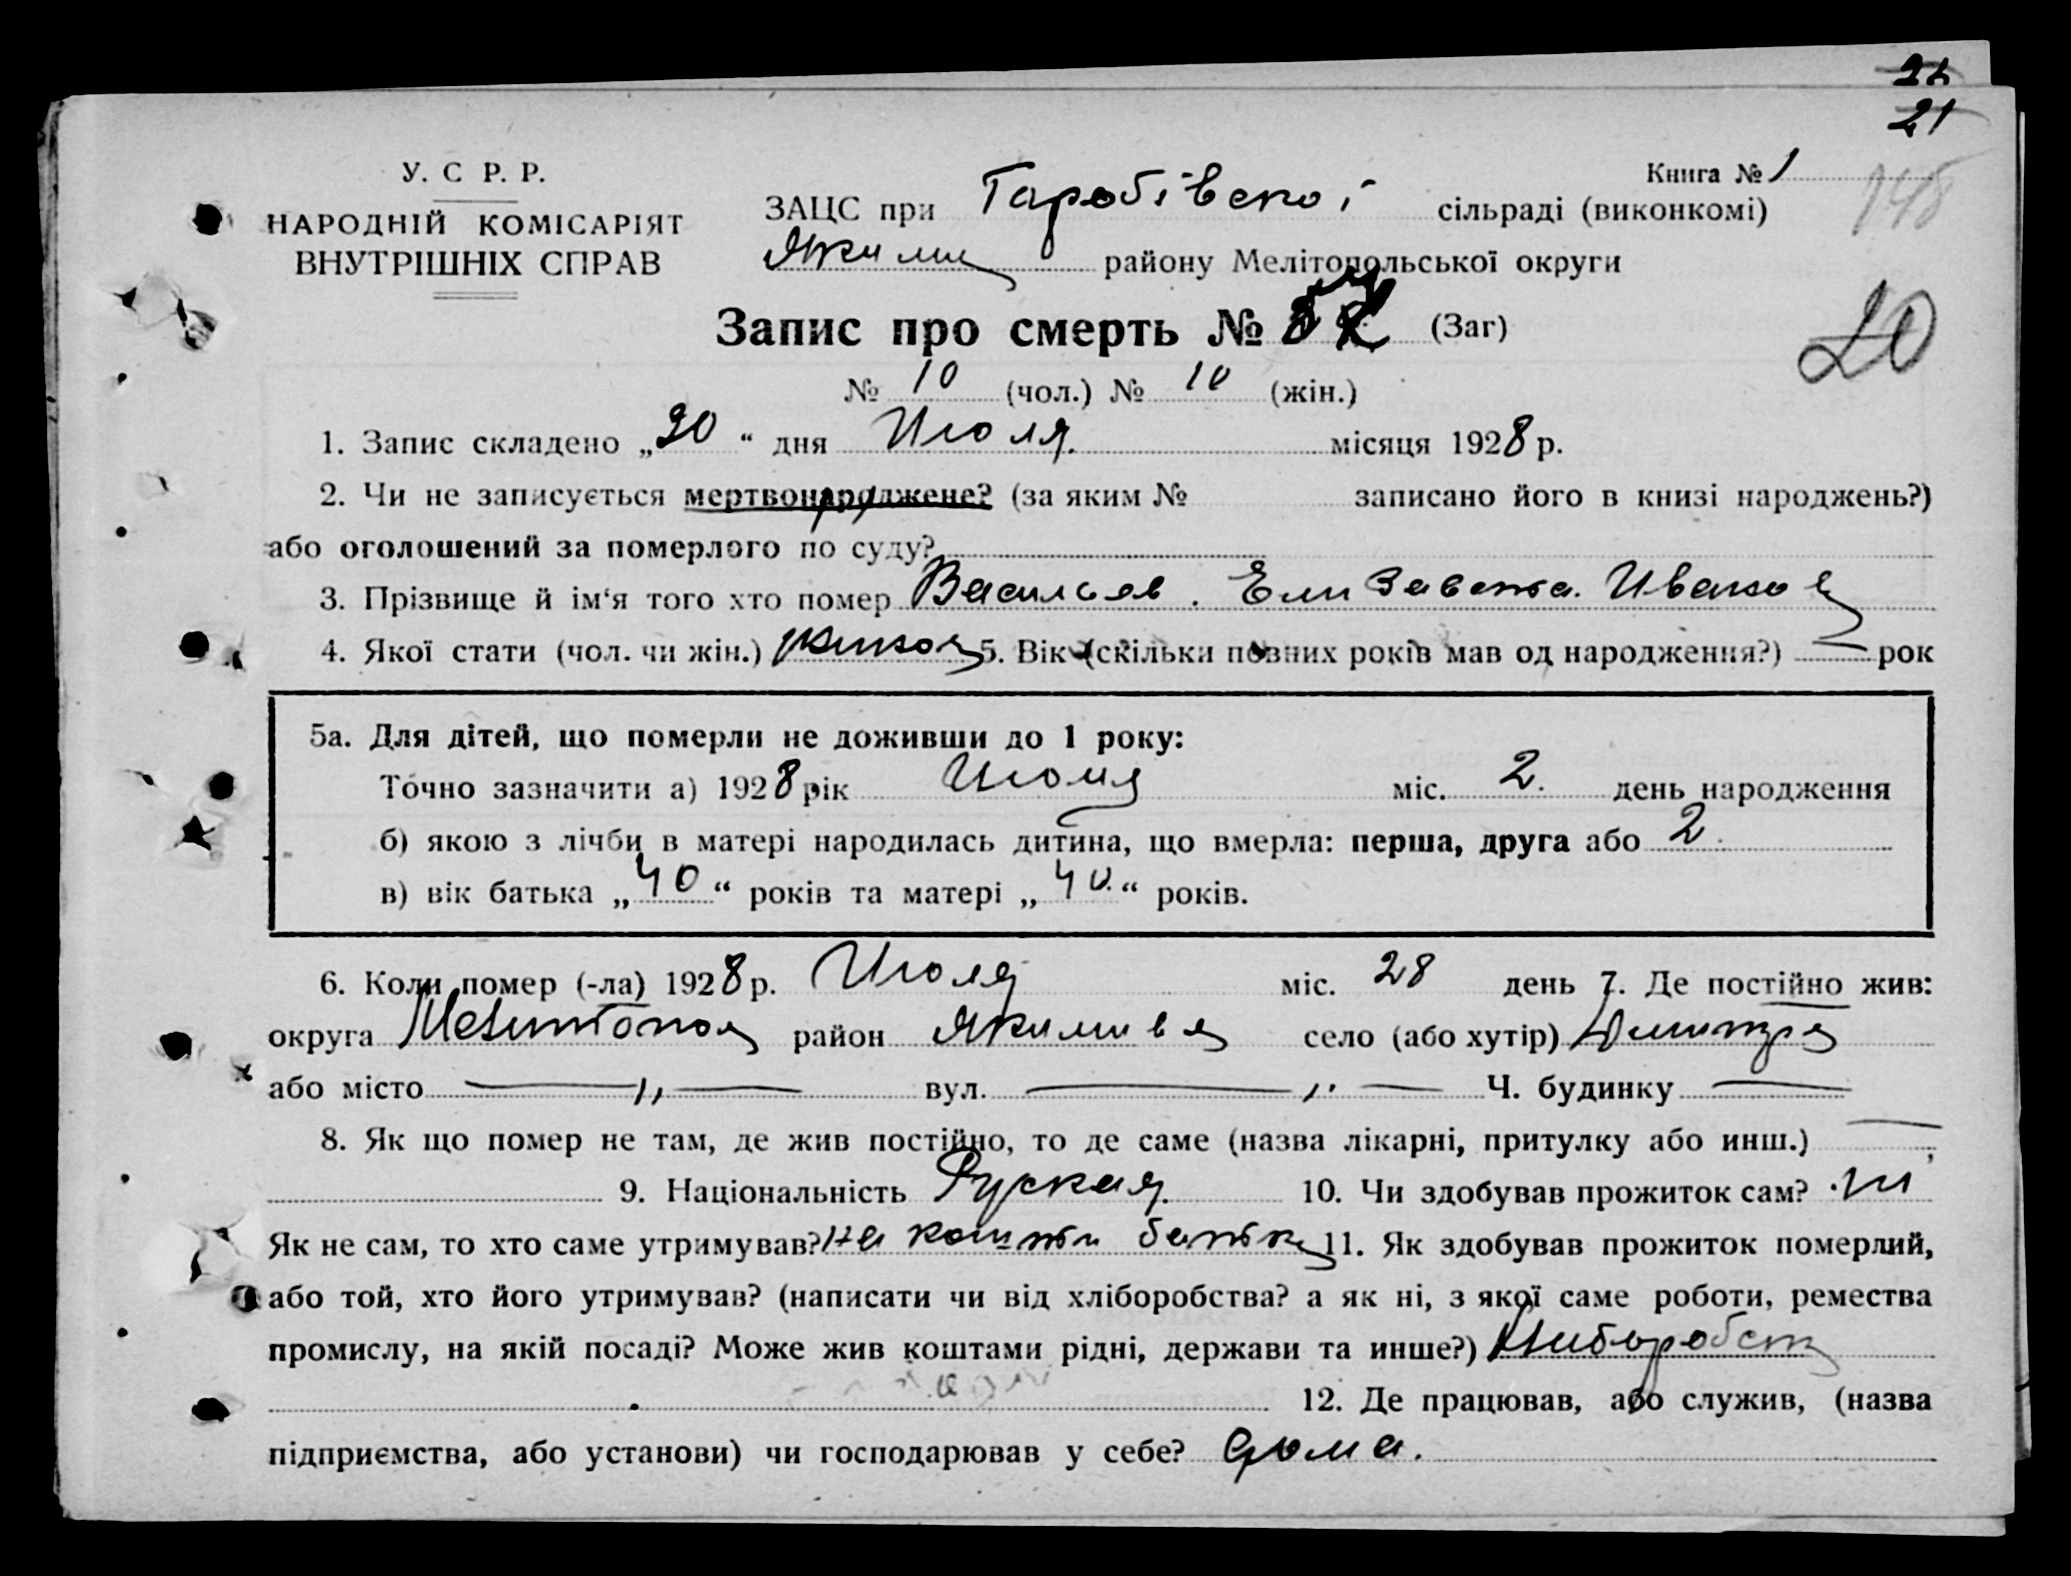 22
21
У. С. Р. Р.
НАРОДНІЙ КОМІСАРІЯТ
ВНУТРІШНІХ СПРАВ
Книга № 1
148
ЗАЦС при сільраді (виконкомі)
Якими району Мелітопольської округи
Запис про смерть № (Заг)
20
№ 10 (чол.) № 10 (жін.)
1. Запис складено „30“ дня Июля. місяця 1928 р.
2. Чи не записується мертвонароджене? (за яким № записано його в книзі народжень?)
або оголошений за померлого по суду?
3. Прізвище й ім‘я того хто помер Васильев. Елизавета. Иванов
4. Якої стати (чол. чи жін.) 5. Вік (скільки повних років мав од народження?) — рок
5а. Для дітей, що померли не доживши до 1 року:
Точно зазначити а) 1928 рік Июля міс. 2. день народження
б) якою з лічби в матері народилась дитина, що вмерла: перша, друга або 2.
в) вік батька „40“ років та матері „40.“ років.
6. Коли помер (-ла) 1928 р. Июля міс. 28 день 7. Де постійно жив:
округа Мелитопол район Якимивя село (або хутір)
або місто — „ — вул. — „ — Ч. будинку —
8. Як що помер не там, де жив постійно, то де саме (назва лікарні, притулку або инш.) —
9. Національність Руская. 10. Чи здобував прожиток сам? ни
Як не сам, то хто саме утримував? на кошти батька 11. Як здобував прожиток померлий,
або той, хто його утримував? (написати чи від хліборобства? а як ні, з якої саме роботи, ремества
промислу, на якій посаді? Може жив коштами рідні, держави та инше?)
12. Де працював, або служив, (назва
підприємства, або установи) чи господарював у себе? дома.